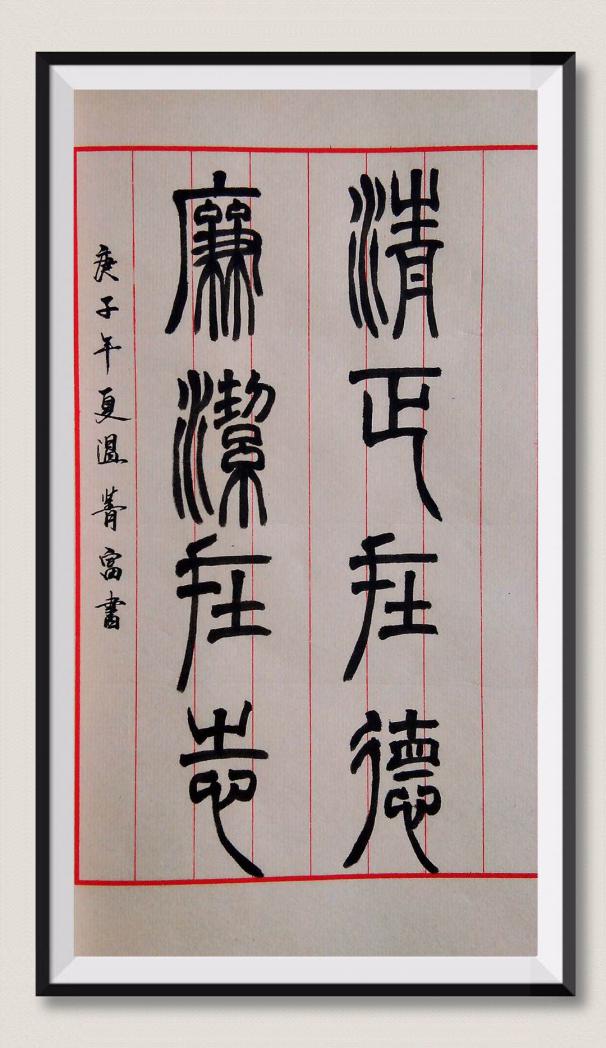 清正在德
廉潔在志
庚子年夏溫菁富書